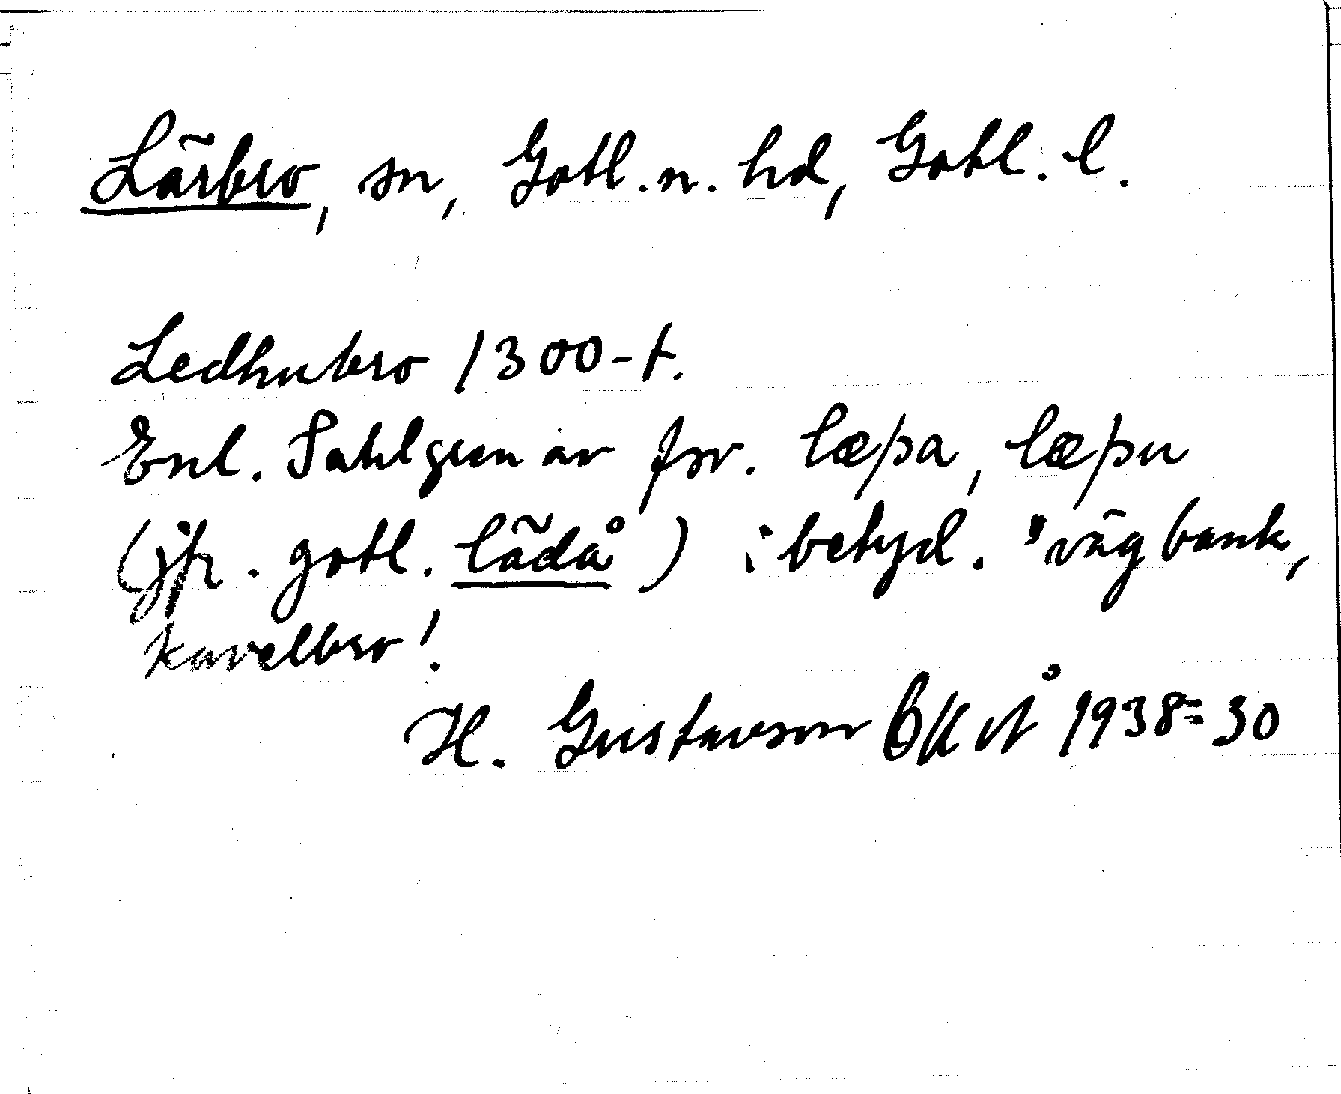 Lärbro, sn, Gotl. n. hd, Gotl. l.
Ledhubro 1300-t.
Enl. Sahlgren av fsv. læþa, læþu
(jfr. gotl. lädå) i betyd. "vägbank,
kavelbro!
H. Gustavson 1938 = 30